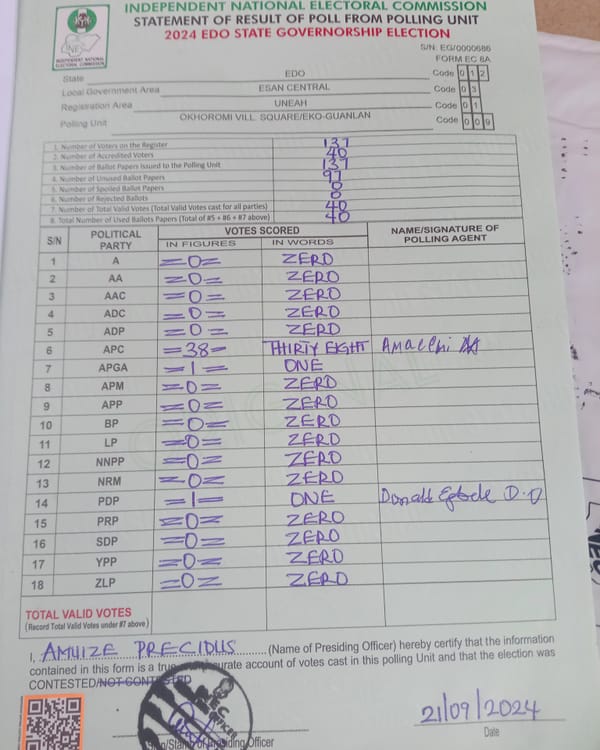 INDEPENDENT NATIONAL ELECTORAL COMMISSION
STATEMENT OF RESULT OF POLL FROM POLLING UNIT
2024 EDO STATE GOVERNORSHIP ELECTION
INEC
INDEPENDENT NATIONAL ELECTORAL COMMISSION
S/N: EG/0000686
FORM EC 8A
State EDO Code 0 1 2
Local Government Area ESAN CENTRAL Code 0 3
Registration Area UNEAH Code 0 1
Polling Unit OKHOROMI VILL. SQUARE/EKO-GUANLAN Code 0 0 9
1. Number of Voters on the Register 137
2. Number of Accredited Voters 40
3. Number of Ballot Papers Issued to the Polling Unit 137
4. Number of Unused Ballot Papers 97
5. Number of Spoiled Ballot Papers 0
6. Number of Rejected Ballots 0
7. Number of Total Valid Votes (Total Valid Votes cast for all parties) 40
8. Total Number of Used Ballots Papers (Total of #5 + #6 + #7 above) 40
S/N POLITICAL PARTY VOTES SCORED NAME/SIGNATURE OF POLLING AGENT
IN FIGURES IN WORDS
1 A =0= ZERO
2 AA =0= ZERO
3 AAC =0= ZERO
4 ADC =0= ZERO
5 ADP =0= ZERO
6 APC =38= THIRTY EIGHT Amaechi
7 APGA =1= ONE
8 APM =0= ZERO
9 APP =0= ZERO
10 BP =0= ZERO
11 LP =0= ZERO
12 NNPP =0= ZERO
13 NRM =0= ZERO
14 PDP =1= ONE Donald
15 PRP =0= ZERO
16 SDP =0= ZERO
17 YPP =0= ZERO
18 ZLP =0= ZERO
TOTAL VALID VOTES
(Record Total Valid Votes under #7 above)
I, AMUIZE PRECIOUS (Name of Presiding Officer) hereby certify that the information
contained in this form is a true accurate account of votes cast in this polling Unit and that the election was
CONTESTED/NOT CONTESTED
21/09/2024
Sign/Stamp of Presiding Officer Date